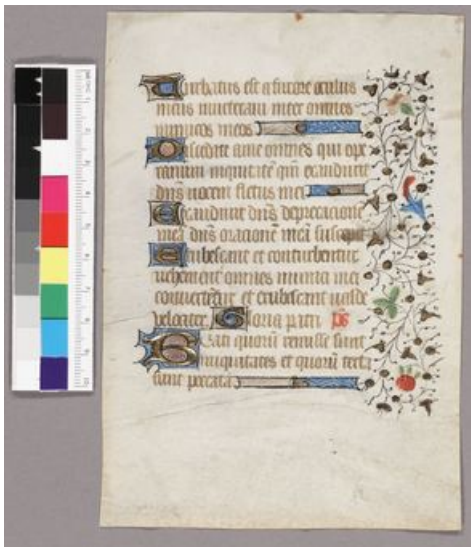 Turbatus est a furore oculus
meus inveteravi inter omnes
inimicos meos
Discedite a me omnes qui ope
ramini iniquitatē qm̄ exaudivit
dn̄s vocem fletus mei
Exaudivit dn̄s deprecacione
meā dn̄s oracionē meā suscepit
Erubescant et conturbentur
vehement omnes inimici mei
convertētur et erubescant valde
velociter Gloria patri ps
Beati quorū remisse sunt
iniquitates et quorū tecta
sunt peccata